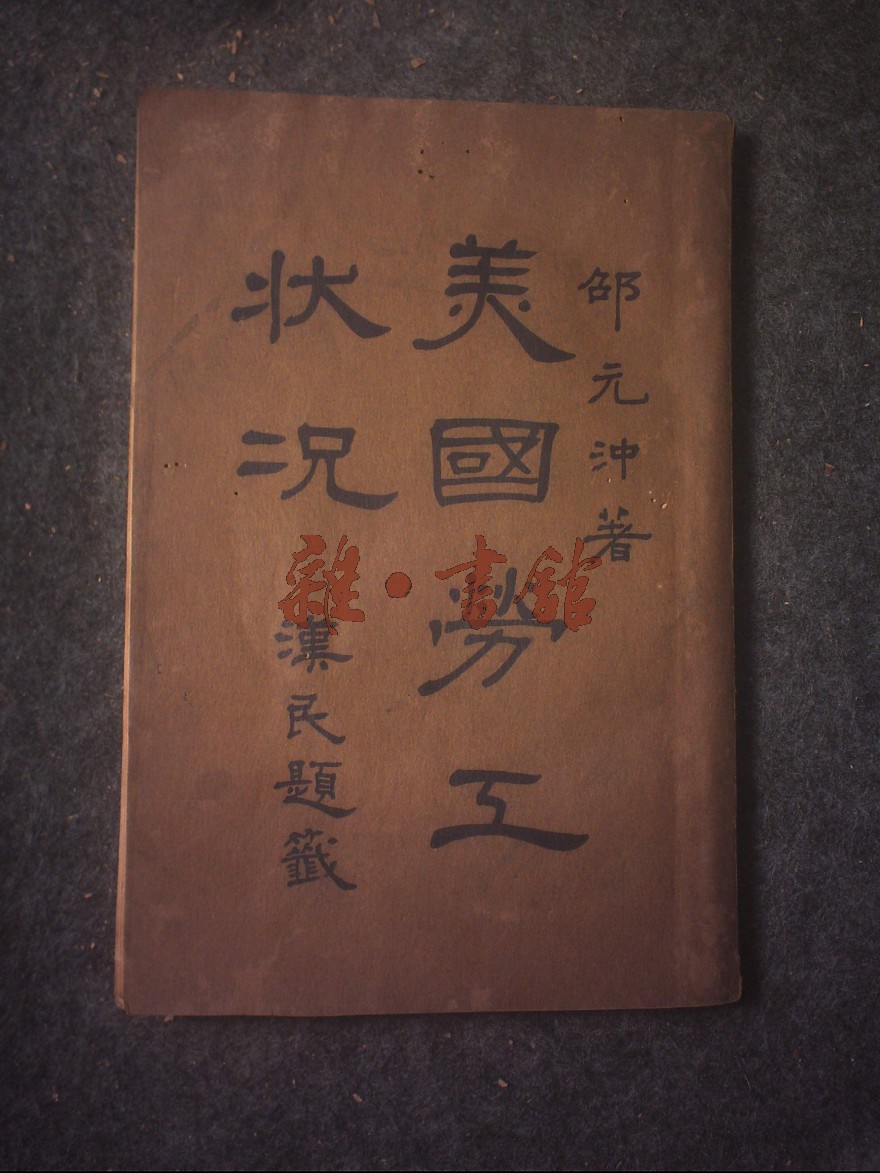 邵元沖著
美國勞工
狀况
漢民題籤
雜·書館